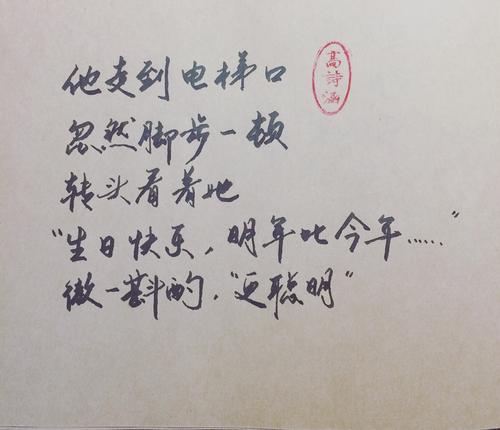 他走到电梯口
忽然脚步一顿
转头看着她
“生日快乐，明年比今年……”
微一斟酌，“更聪明”
高詩涵